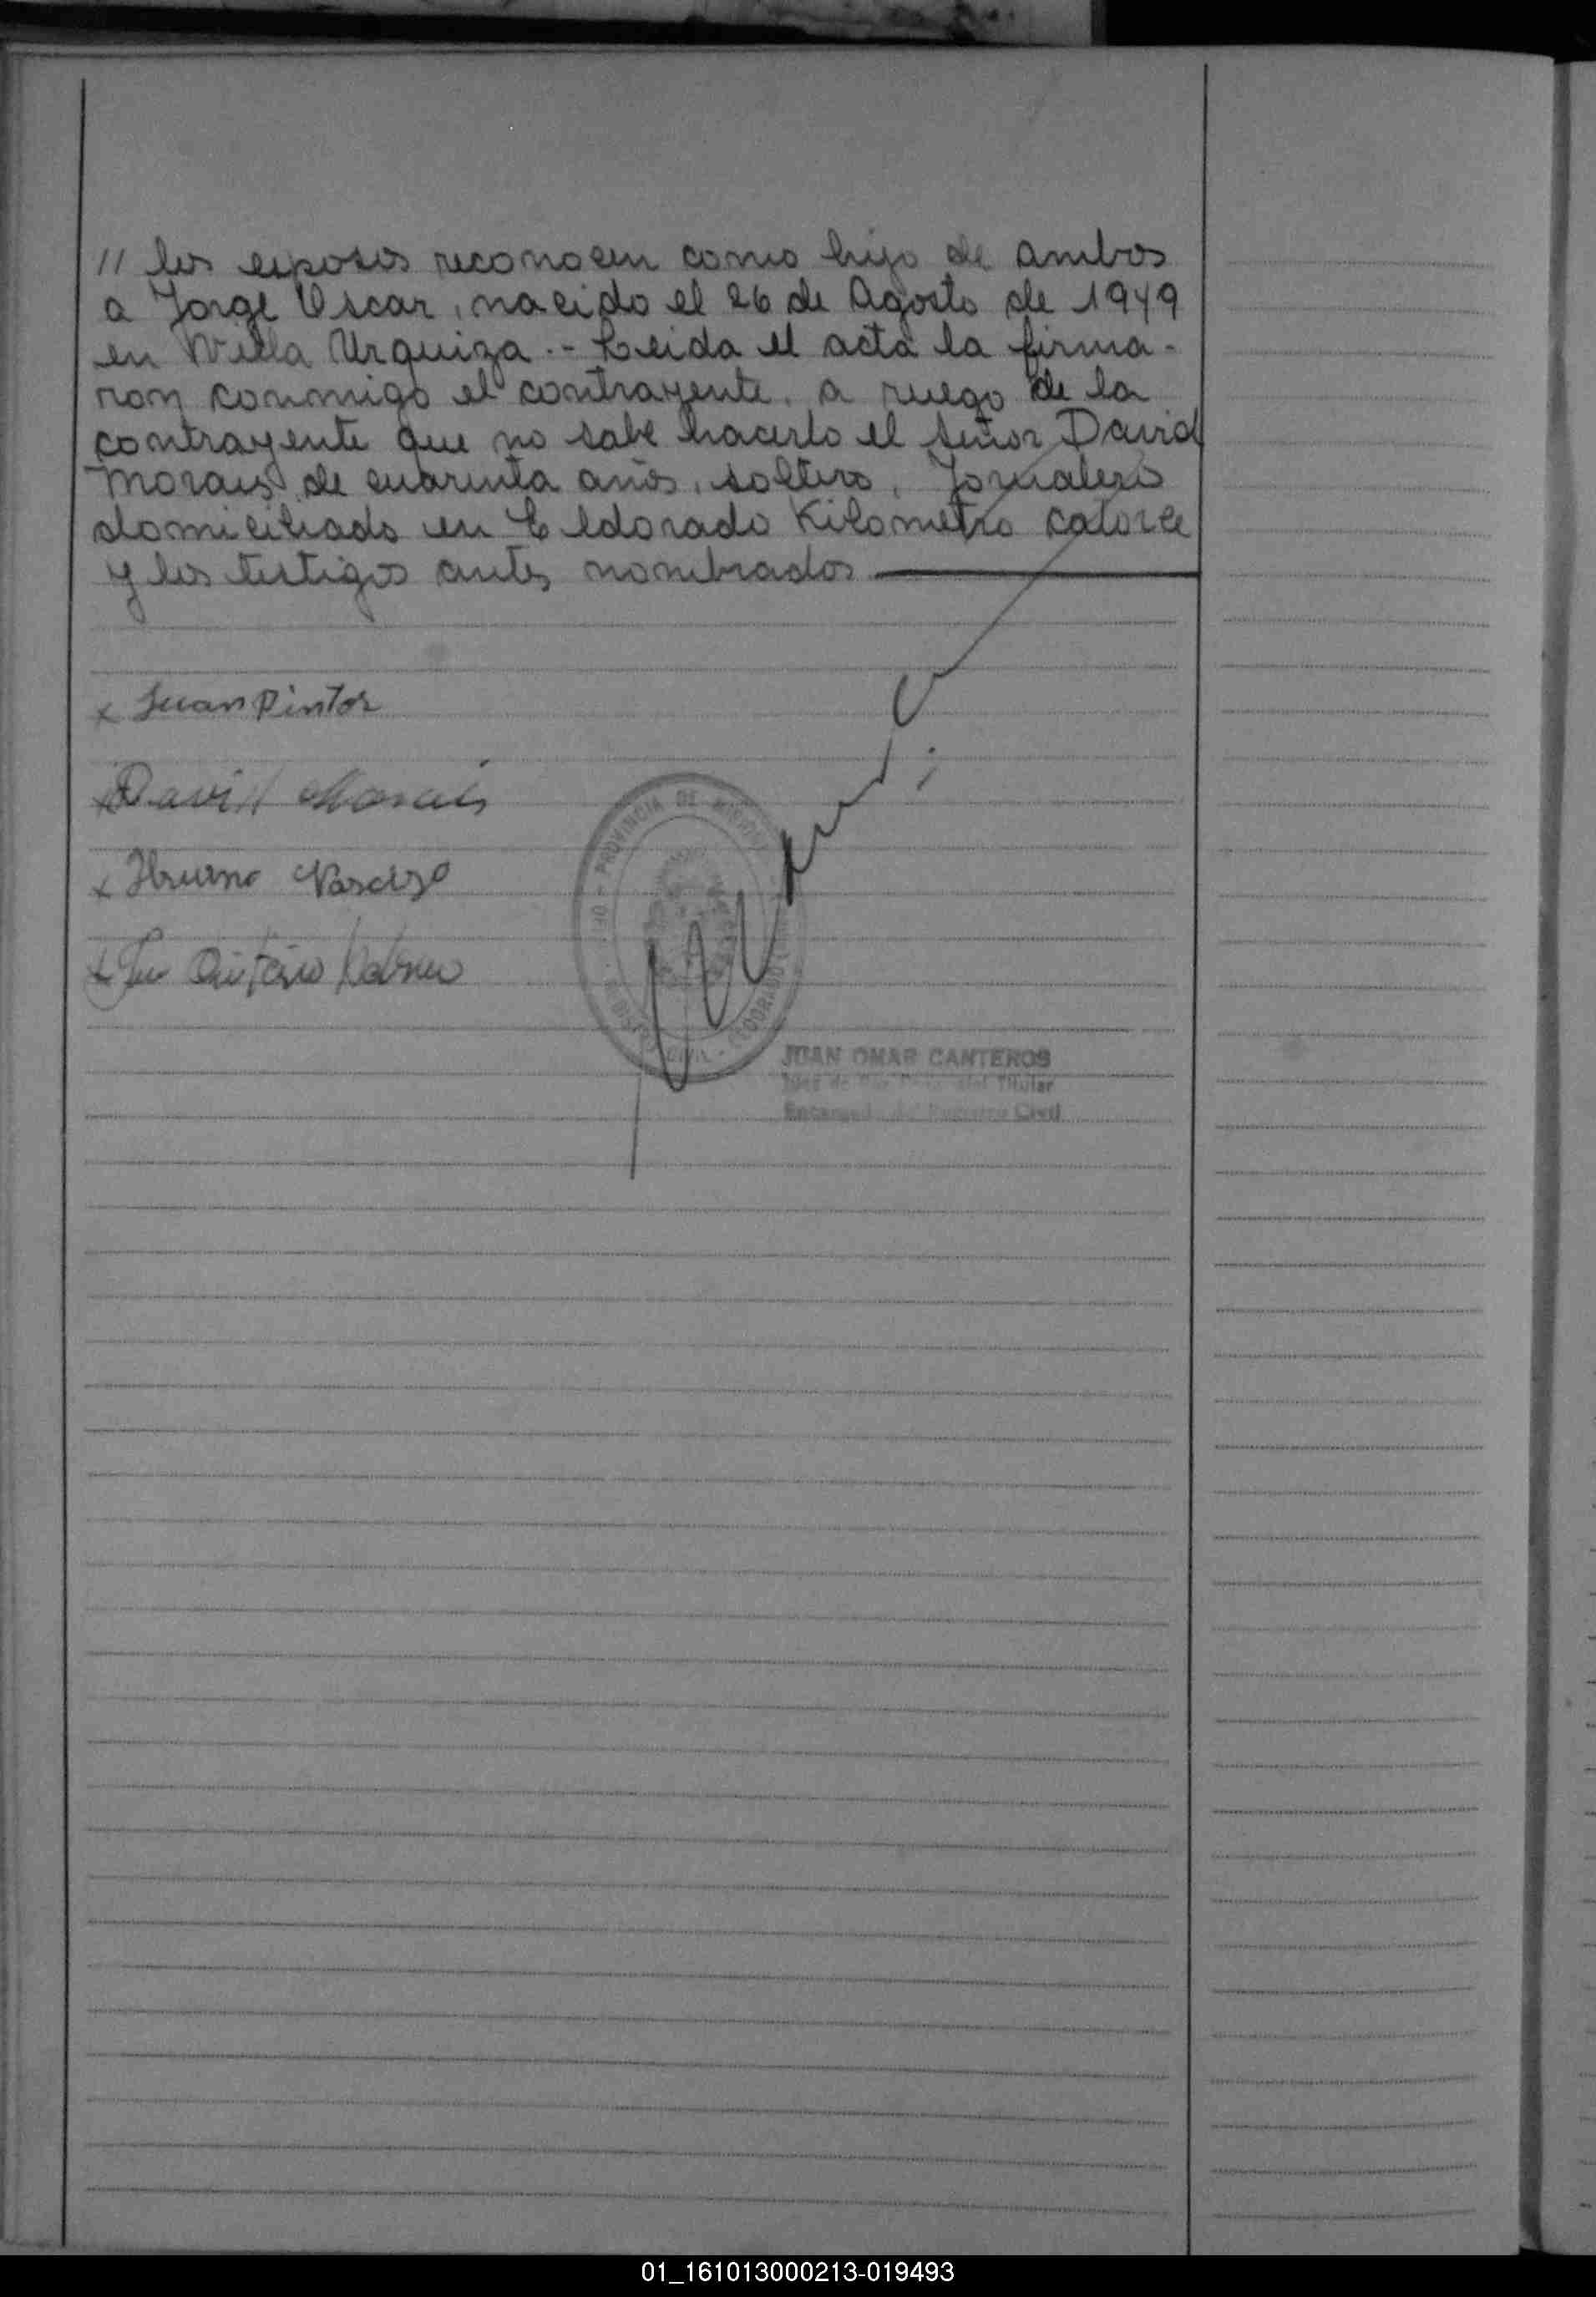 // los esposos reconocen como hijo de ambos
a Jorge Oscar, nacido el 26 de Agosto de 1949
en Villa Urquiza.- Leida el acta la firma-
ron conmigo el contrayente, a ruego de la
contrayente que no sabe hacerlo el señor David
Morais, de cuarenta años, soltero, Jornalero
domiciliado en Eldorado Kilometro catorce
y los testigos antes nombrados
x Juan Pintor
x David Morais
x Bruno
x
PROVINCIA DE MISIONES
REGISTRO CIVIL - ELDORADO
JUAN OMAR CANTEROS
Juez de Paz Titular
Encargado del Registro Civil
01_161013000213-019493